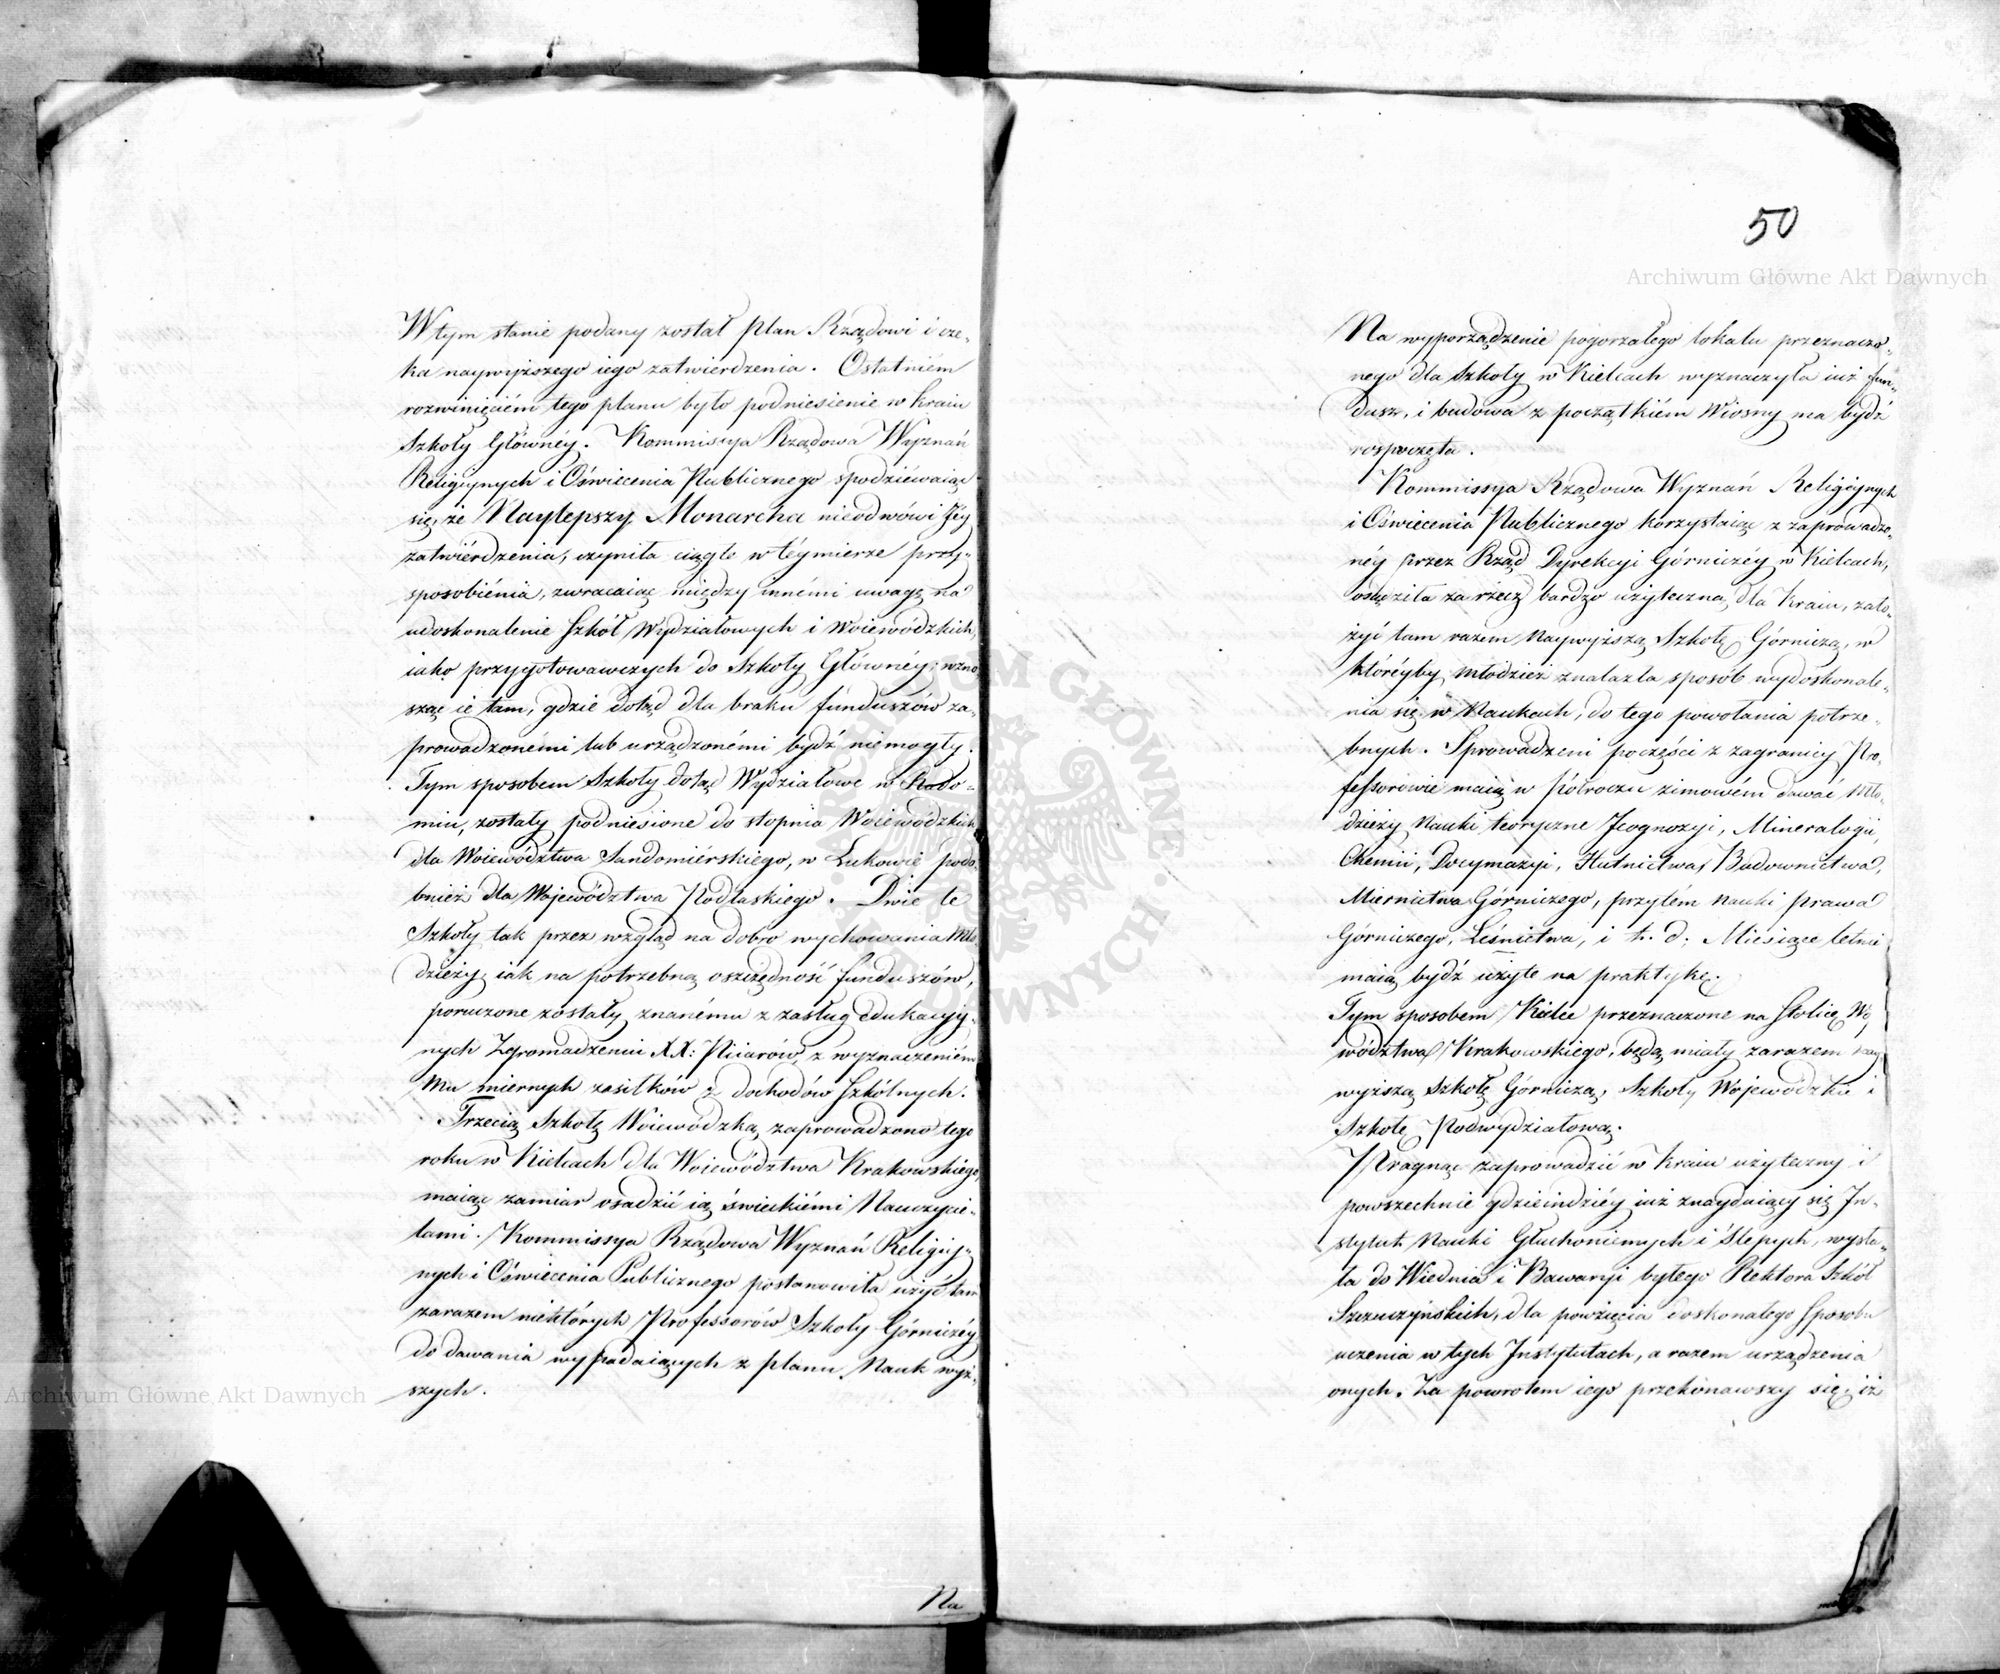 W tym stanie podany został Plan Rządowi i cze-
ka naywyższego iego zatwierdzenia. Ostatniém
rozwinięciém tego planu było podniesienie w kraiu
Szkoły Głównéy. Kommissya Rządowa Wyznań
Religiynych i Oświecenia Publicznego spodziéwaiąc
się, że Naylepszy Monarcha nieodmówi Jéy
zatwiérdzenia, czyniła ciągłe w téymierze przy-
sposobiénia, zwracaiąc między innémi uwagę na
udoskonalenie Szkół Wydziałowych i Woiewódzkich,
iako przygotowawczych do Szkoły Głównéy; wzno
sząc ie tam, gdzie dotąd dla braku funduszów za-
prowadzonémi lub urządzonémi bydź niemogły.
Tym sposobem Szkoły dotąd Wydziałowe w Rado-
miu, zostały podniesione do stopnia Woiewódzkich
dla Woiewództwa Sandomiérskiego, w Łukowie podo
bnież dla Wojewódźtwa Podlaskiego. Dwie te
Szkoły tak przez wzgląd na dobro wychowania Mło
dzieży iak na potrzebną oszczędność funduszów,
poruczone zostały znanému z zasług edukacyy-
nych Zgromadzeniu XX: Piiarów z wyznaczeniém
mu miernych zasiłków z dochodów Szkólnych.
Trzecią Szkołę Woiewódzką zaprowadzono tego
roku w Kielcach dla Woiewództwa Krakowskiégo,
maiąc zamiar osadzić ią świeckiémi Nauczycie-
lami. Kommissya Rządowa Wyznań Religiy-
nych i Oświecenia Publicznego postanowiła użyć tam
zarazem niektórych Professorów Szkoły Górniczéy
do dawania wypadaiących z planu Nauk wyż-
szych.
Na
50
Na wyporządzenie pogorzałego lokalu przeznaczo-
nego dla Szkoły w Kielcach wyznaczyła iuż fun-
dusz, i budowa z początkiém Wiosny ma bydź
rospoczęta.
Kommissya Rządowa Wyznań Religiynych
i Oświecenia Publicznego korzystaiąc z zaprowadzo-
néy przez Rząd Dyrekcyi Górniczéy w Kielcach,
osądziła za rzecz bardzo użyteczną dla Kraiu, zało-
żyć tam razem Naywyższą Szkołę Górniczą, w
któréyby Młodzież znalazła sposób wydoskonale-
nia się w Naukach, do tego powołania potrze-
bnych. Sprowadzeni poczęści z zagranicy Pro-
fessorowie maią w Półroczu zimowém dawać Mło-
dzieży Nauki teoryczne Jeognozyi, Mineralogii,
Chemii, Docymazyi, Hutnictwa, Budownictwa,
Miernictwa Górniczego, przytém Nauki prawa
Górniczego, Leśnictwa, i t. d; Miesiące letnie
maią bydź użyte na praktykę.
Tym sposobem Kielce przeznaczone na Stolicę Wo
wództwa Krakowskiego, będą miały zarazem nay
wyższą Szkołę Górniczą, Szkoły Wojewódzkie i
Szkołę Podwydziałową.
Pragnąc zaprowadzić w Kraiu użyteczny i
powszechnie gdzieindziéy iuż znayduiący się In-
stytut Nauki Głuchoniemych i Ślepych, wysła-
ła do Wiednia i Bawaryi byłego Rektora Szkół
Szczuczyńskich, dla powzięcia doskonałego sposobu
uczenia w tych Instytutach, a razem urządzenia
onych. Za powrotem iego przekonawszy się, iż
Archiwum Główne Akt Dawnych
Archiwum Główne Akt Dawnych
ARCHIWUM GŁÓWNE AKT DAWNYCH